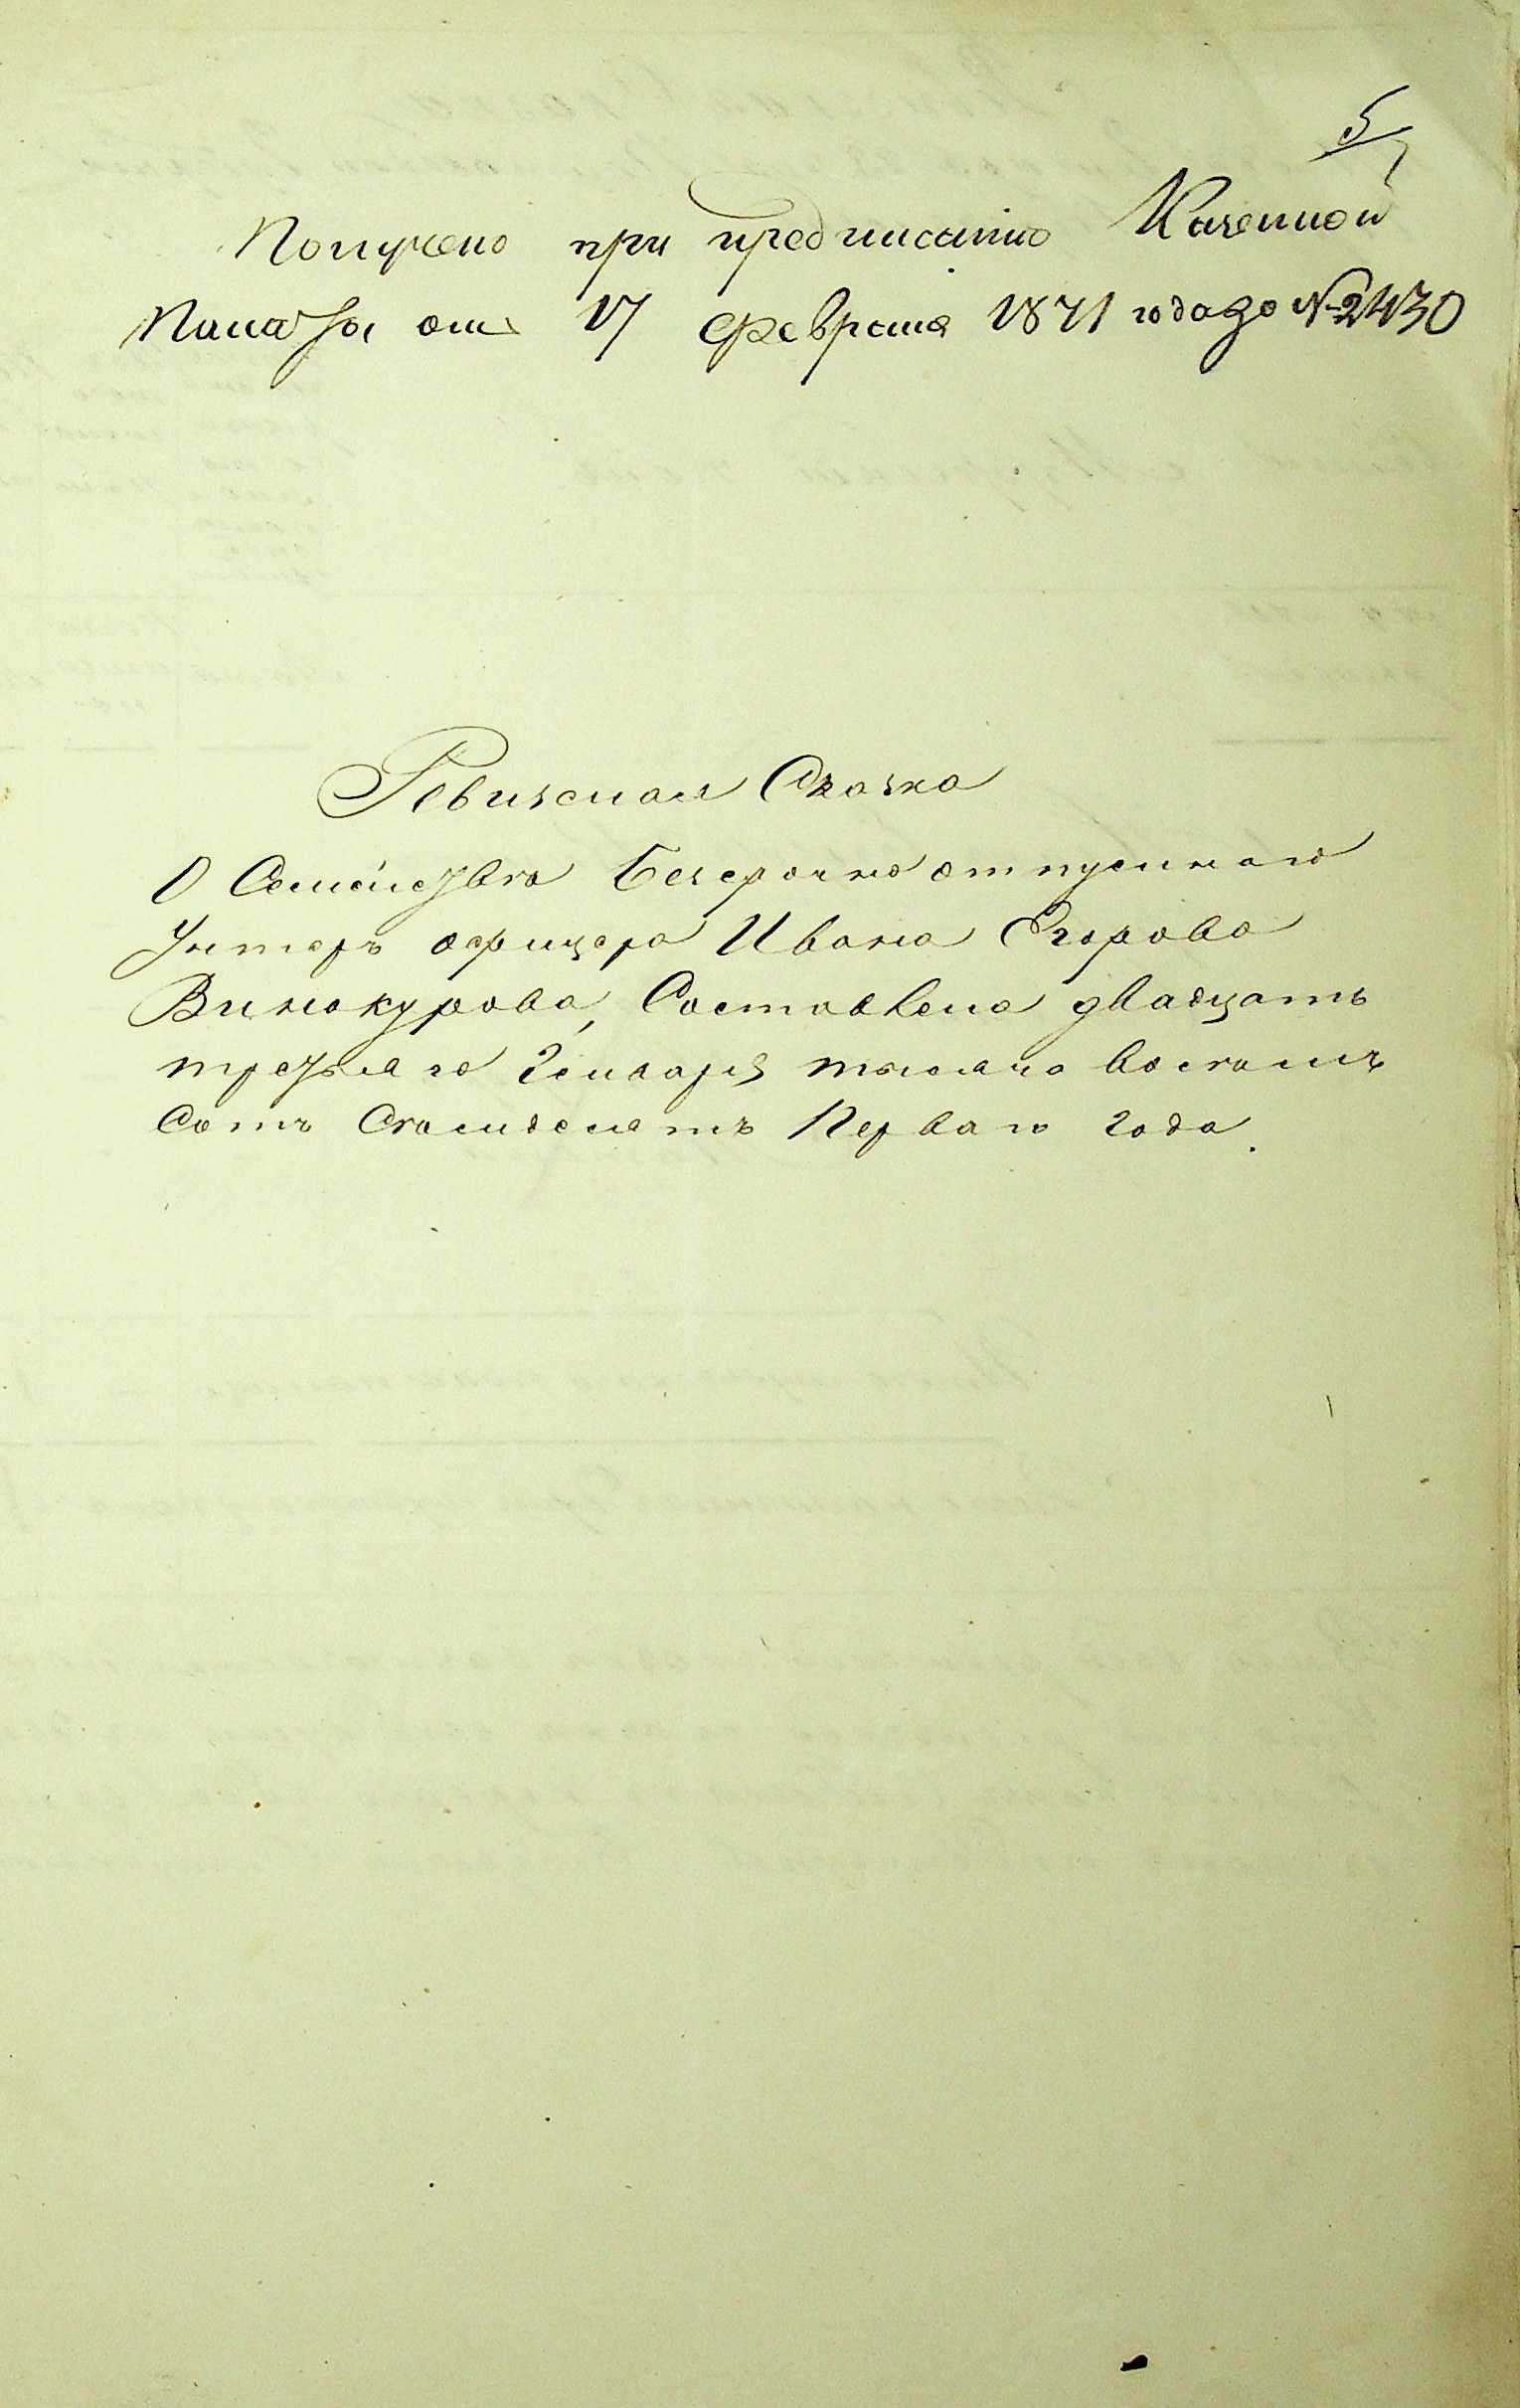 5
Получено при предписанiи Казенной
Палаты отъ 17 февраля 1871 года за № 2430
Ревизская Сказка
О Семействѣ Безсрочно отпускнаго
Унтеръ офицера Ивана Егорова
Винокурова, Составлена двадцать
третьяго Генваря тысяча восемь
Сотъ Семидесятъ Перваго года.